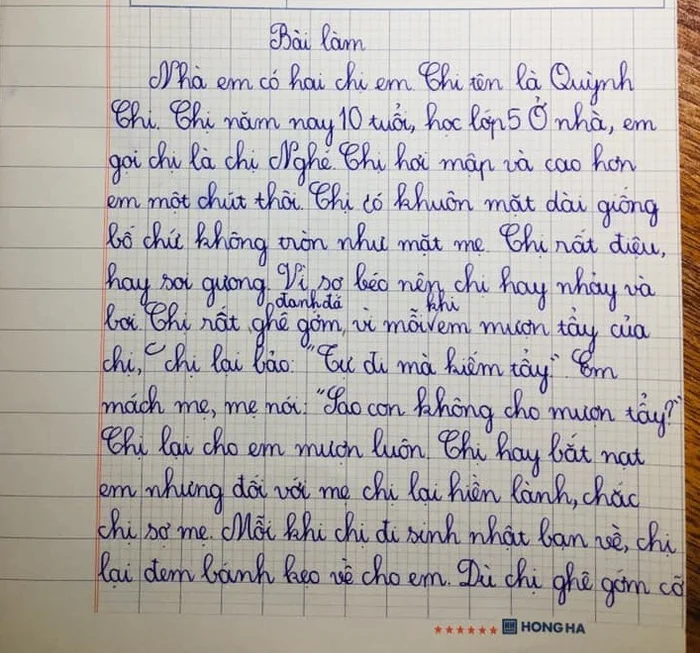 Bài làm
Nhà em có hai chị em. Chị tên là Quỳnh
Chi. Chị năm nay 10 tuổi, học lớp 5 Ở nhà, em
gọi chị là chị Nghé. Chị hơi mập và cao hơn
em một chút thôi. Chị có khuôn mặt dài giống
bố chứ không tròn như mặt mẹ. Chị rất điệu,
hay soi gương. Vì sợ béo nên chị hay nhảy và
bơi. Chị rất ghê gớm, đanh đá vì mỗi khi em mượn tẩy của
chị, chị lại bảo: "Tự đi mà kiếm tẩy". Em
mách mẹ, mẹ nói: "Sao con không cho mượn tẩy?"
Chị lại cho em mượn luôn. Chị hay bắt nạt
em nhưng đối với mẹ chị lại hiền lành, chắc
chị sợ mẹ. Mỗi khi chị đi sinh nhật bạn về, chị
lại đem bánh kẹo về cho em. Dù chị ghê gớm cỡ
HONG HA